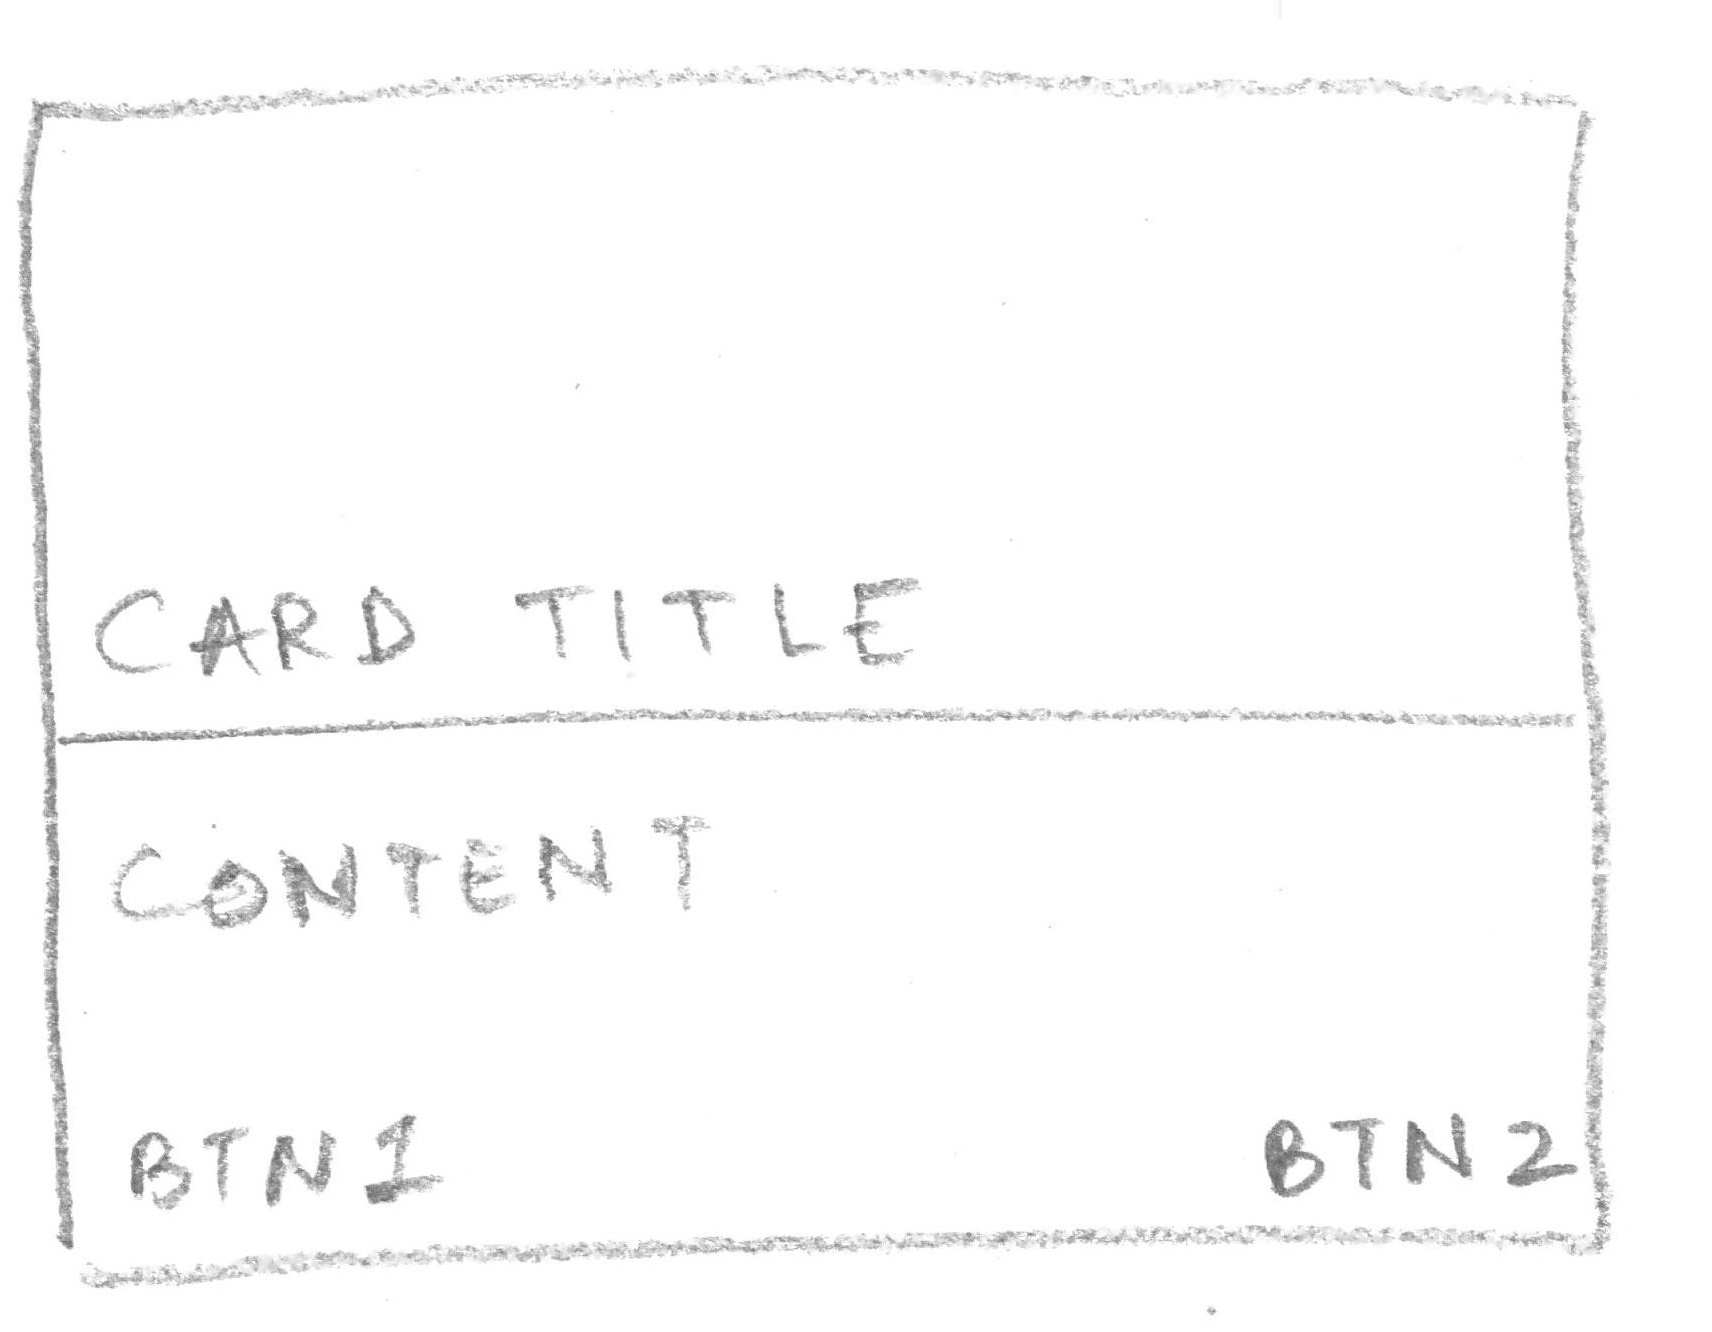 CARD TITLE
CONTENT
BTN1
BTN2